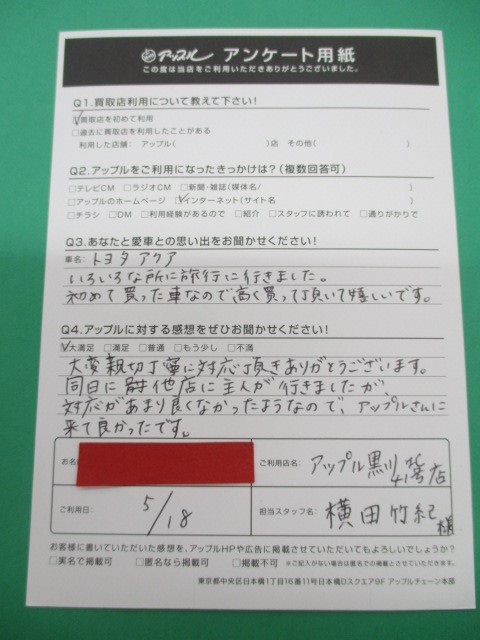 アップル アンケート用紙
この度は当店をご利用いただきありがとうございました。
Q1.買取店利用について教えて下さい!
☑買取店を初めて利用
□過去に買取店を利用したことがある
利用した店舗: アップル( )店 その他( )
Q2.アップルをご利用になったきっかけは?(複数回答可)
□テレビCM □ラジオCM □新聞・雑誌(媒体名/ )
□アップルのホームページ ☑インターネット(サイト名 )
□チラシ □DM □利用経験があるので □紹介 □スタッフに誘われて □通りがかりで
Q3.あなたと愛車との思い出をお聞かせください!
車名: トヨタ アクア
いろいろな所に旅行に行きました。
初めて買った車なので高く買って頂いて嬉しいです。
Q4.アップルに対する感想をぜひお聞かせください!
☑大満足 □満足 □普通 □もう少し □不満
大変親切丁寧に対応頂きありがとうございます。
同日に 他店に主人が行きましたが、
対応があまり良くなかったようなので、アップルさんに
来て良かったです。
お名
ご利用店名: アップル黒川41号店
ご利用日: 5/18
担当スタッフ名: 横田竹紀様
お客様に書いていただいた感想を、アップルHPや広告に掲載させていただいてもよろしいでしょうか?
□実名で掲載可 □匿名なら掲載可 □掲載不可 ※ご記入がない場合は匿名での掲載とさせていただきます。
東京都中央区日本橋1丁目16番11号日本橋Dスクエア9F アップルチェーン本部